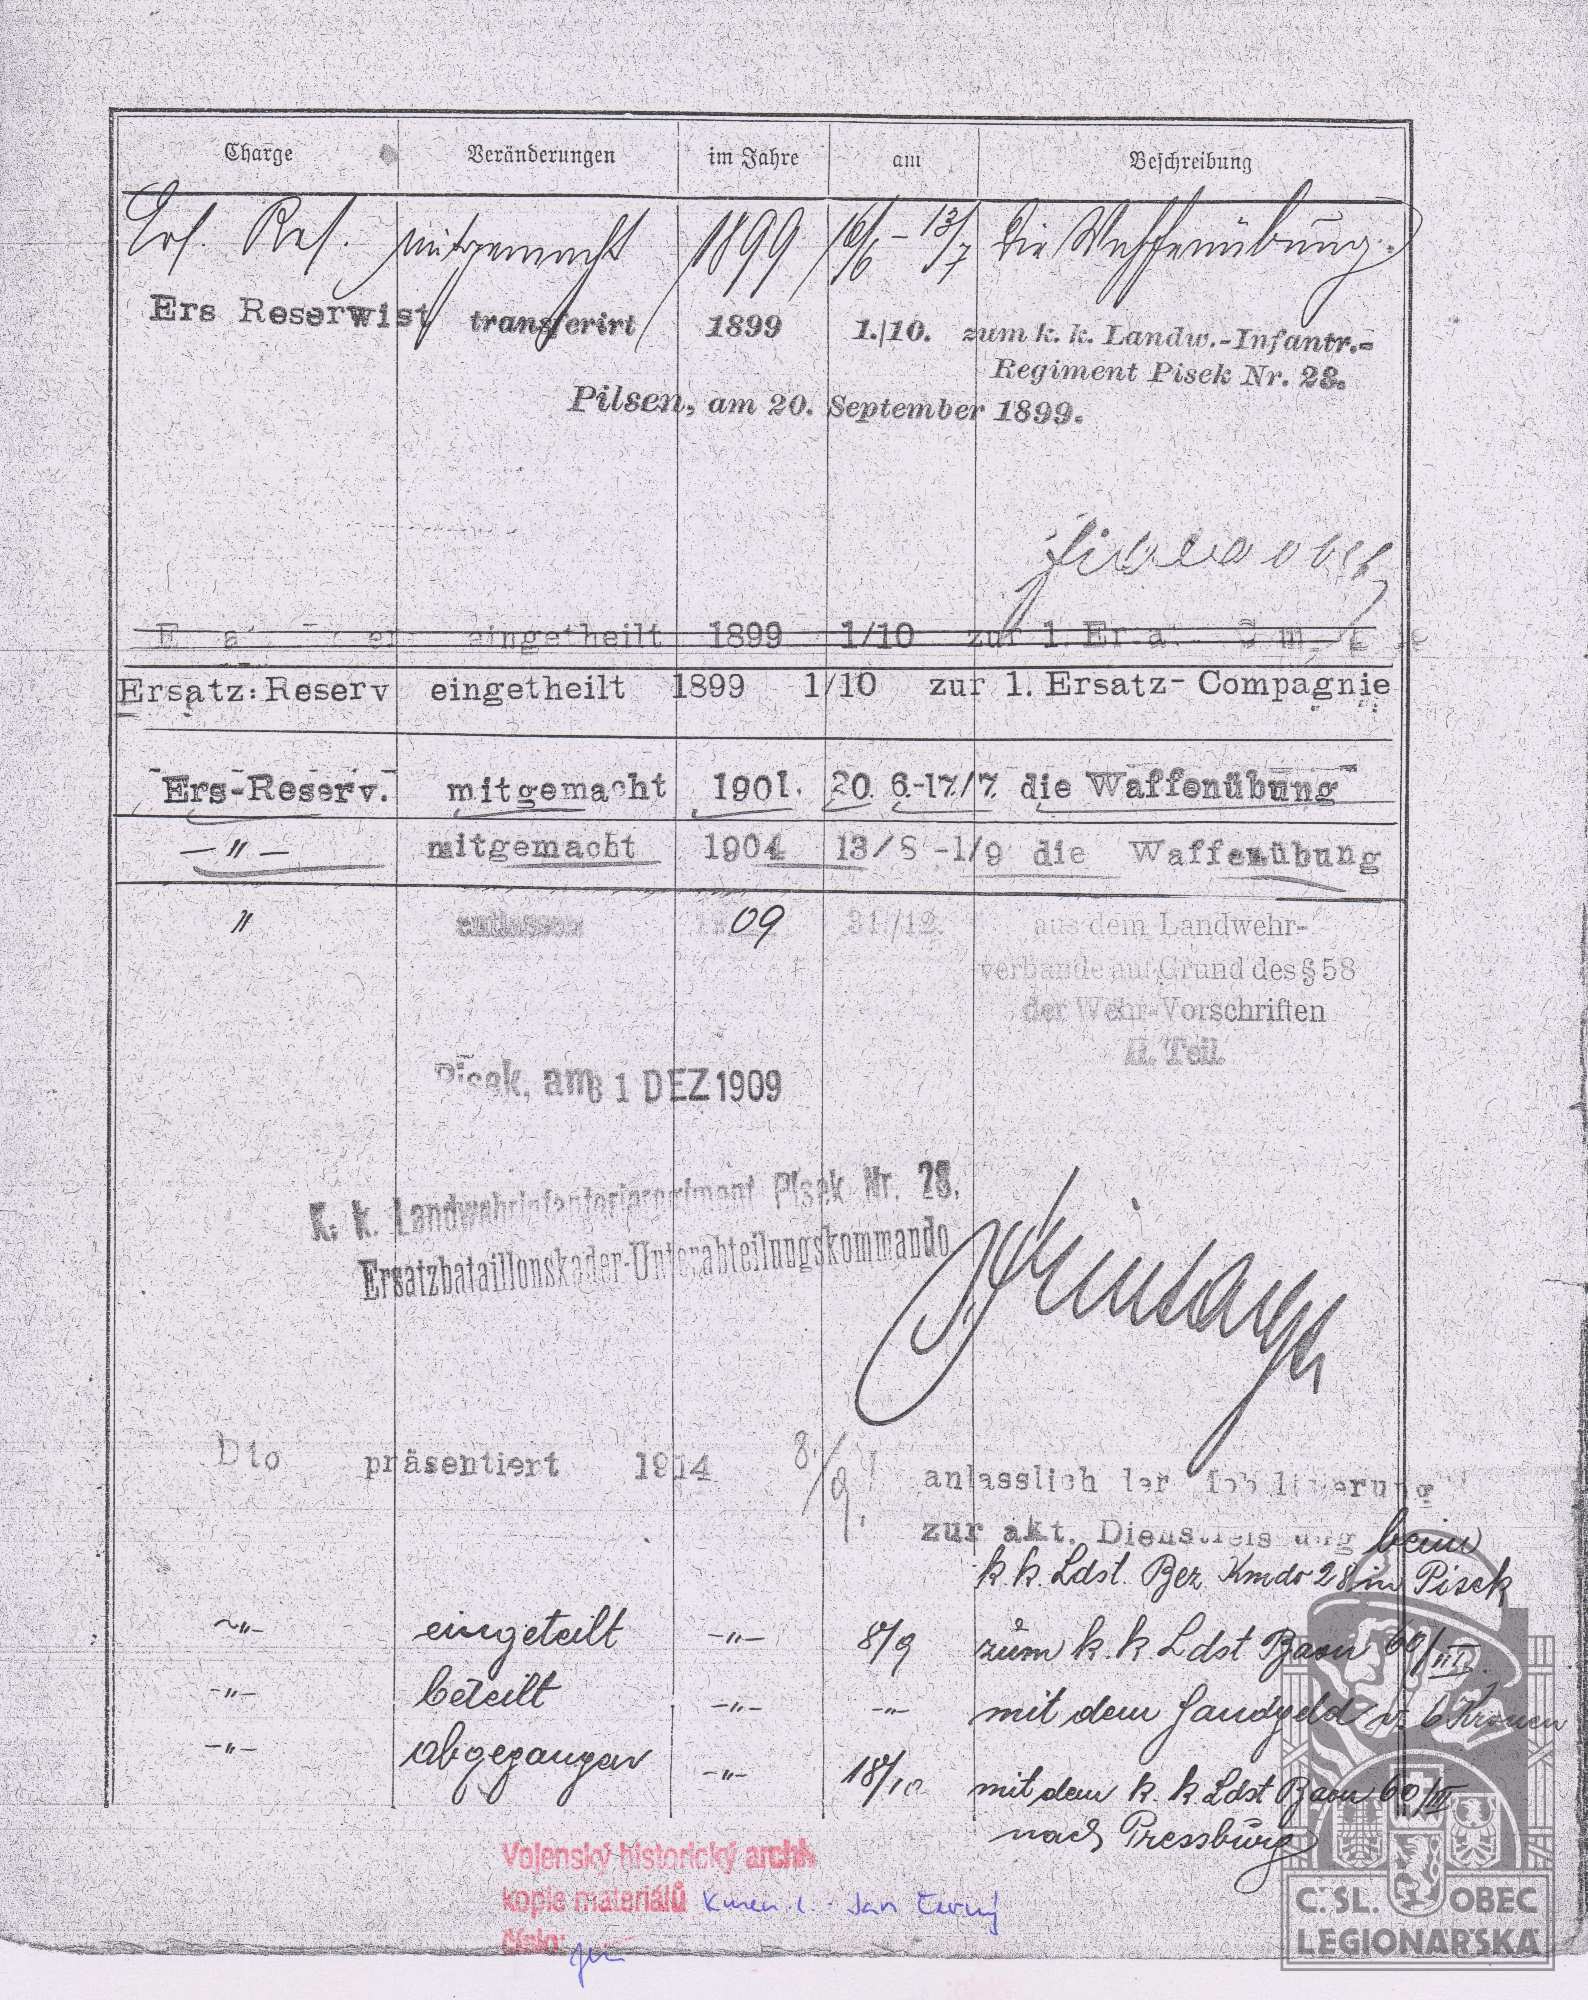 Charge Veränderungen im Jahre am Beschreibung
Ers. Res. mitgemacht 1899 16/6 - 13/7 die Waffenübung.
Ers Reserwist transferirt 1899 1./10. zum k. k. Landw.-Infantr.-
Regiment Pisek Nr. 28.
Pilsen, am 20. September 1899.
eingetheilt 1899 1/10 zur 1.
Ersatz: Reserv eingetheilt 1899 1/10 zur 1. Ersatz- Compagnie
Ers-Reserv. mitgemacht 1901. 20. 6.-17/7 die Waffenübung
— " — mitgemacht 1904 13/8 -1/9 die Waffenübung
" entlassen 09 31/12. aus dem Landwehr-
verbande auf Grund des § 58
der Wehr-Vorschriften
II. Teil.
Pisek, am 31 DEZ 1909
K. k. Landwehrinfanterieregiment Pisek Nr. 28.
Ersatzbataillonskader-Unterabteilungskommando
Dto präsentiert 1914 8./9. anlasslich der Mobilisierung
zur akt. Dienstleistung beim
k. k. Ldst. Bez Kmdo 28 in Pisek
-"- eingeteilt -"- 8/9 zum k. k. Ldst Baon 60/III.
-"- beteilt -"- -"- mit dem Handgeld v. 6 Kronen
-"- abgegangen -"- 18/10 mit dem k. k. Ldst Baon 60/III
nach Pressburg
Vojenský historický archiv
kopie materiálů Kmen. l. - Jan Černý
číslo:
Č. SL. OBEC
LEGIONÁŘSKÁ